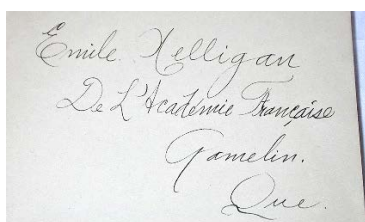 Emile Nelligan
De L'Académie Française
Gamelin.
Que.